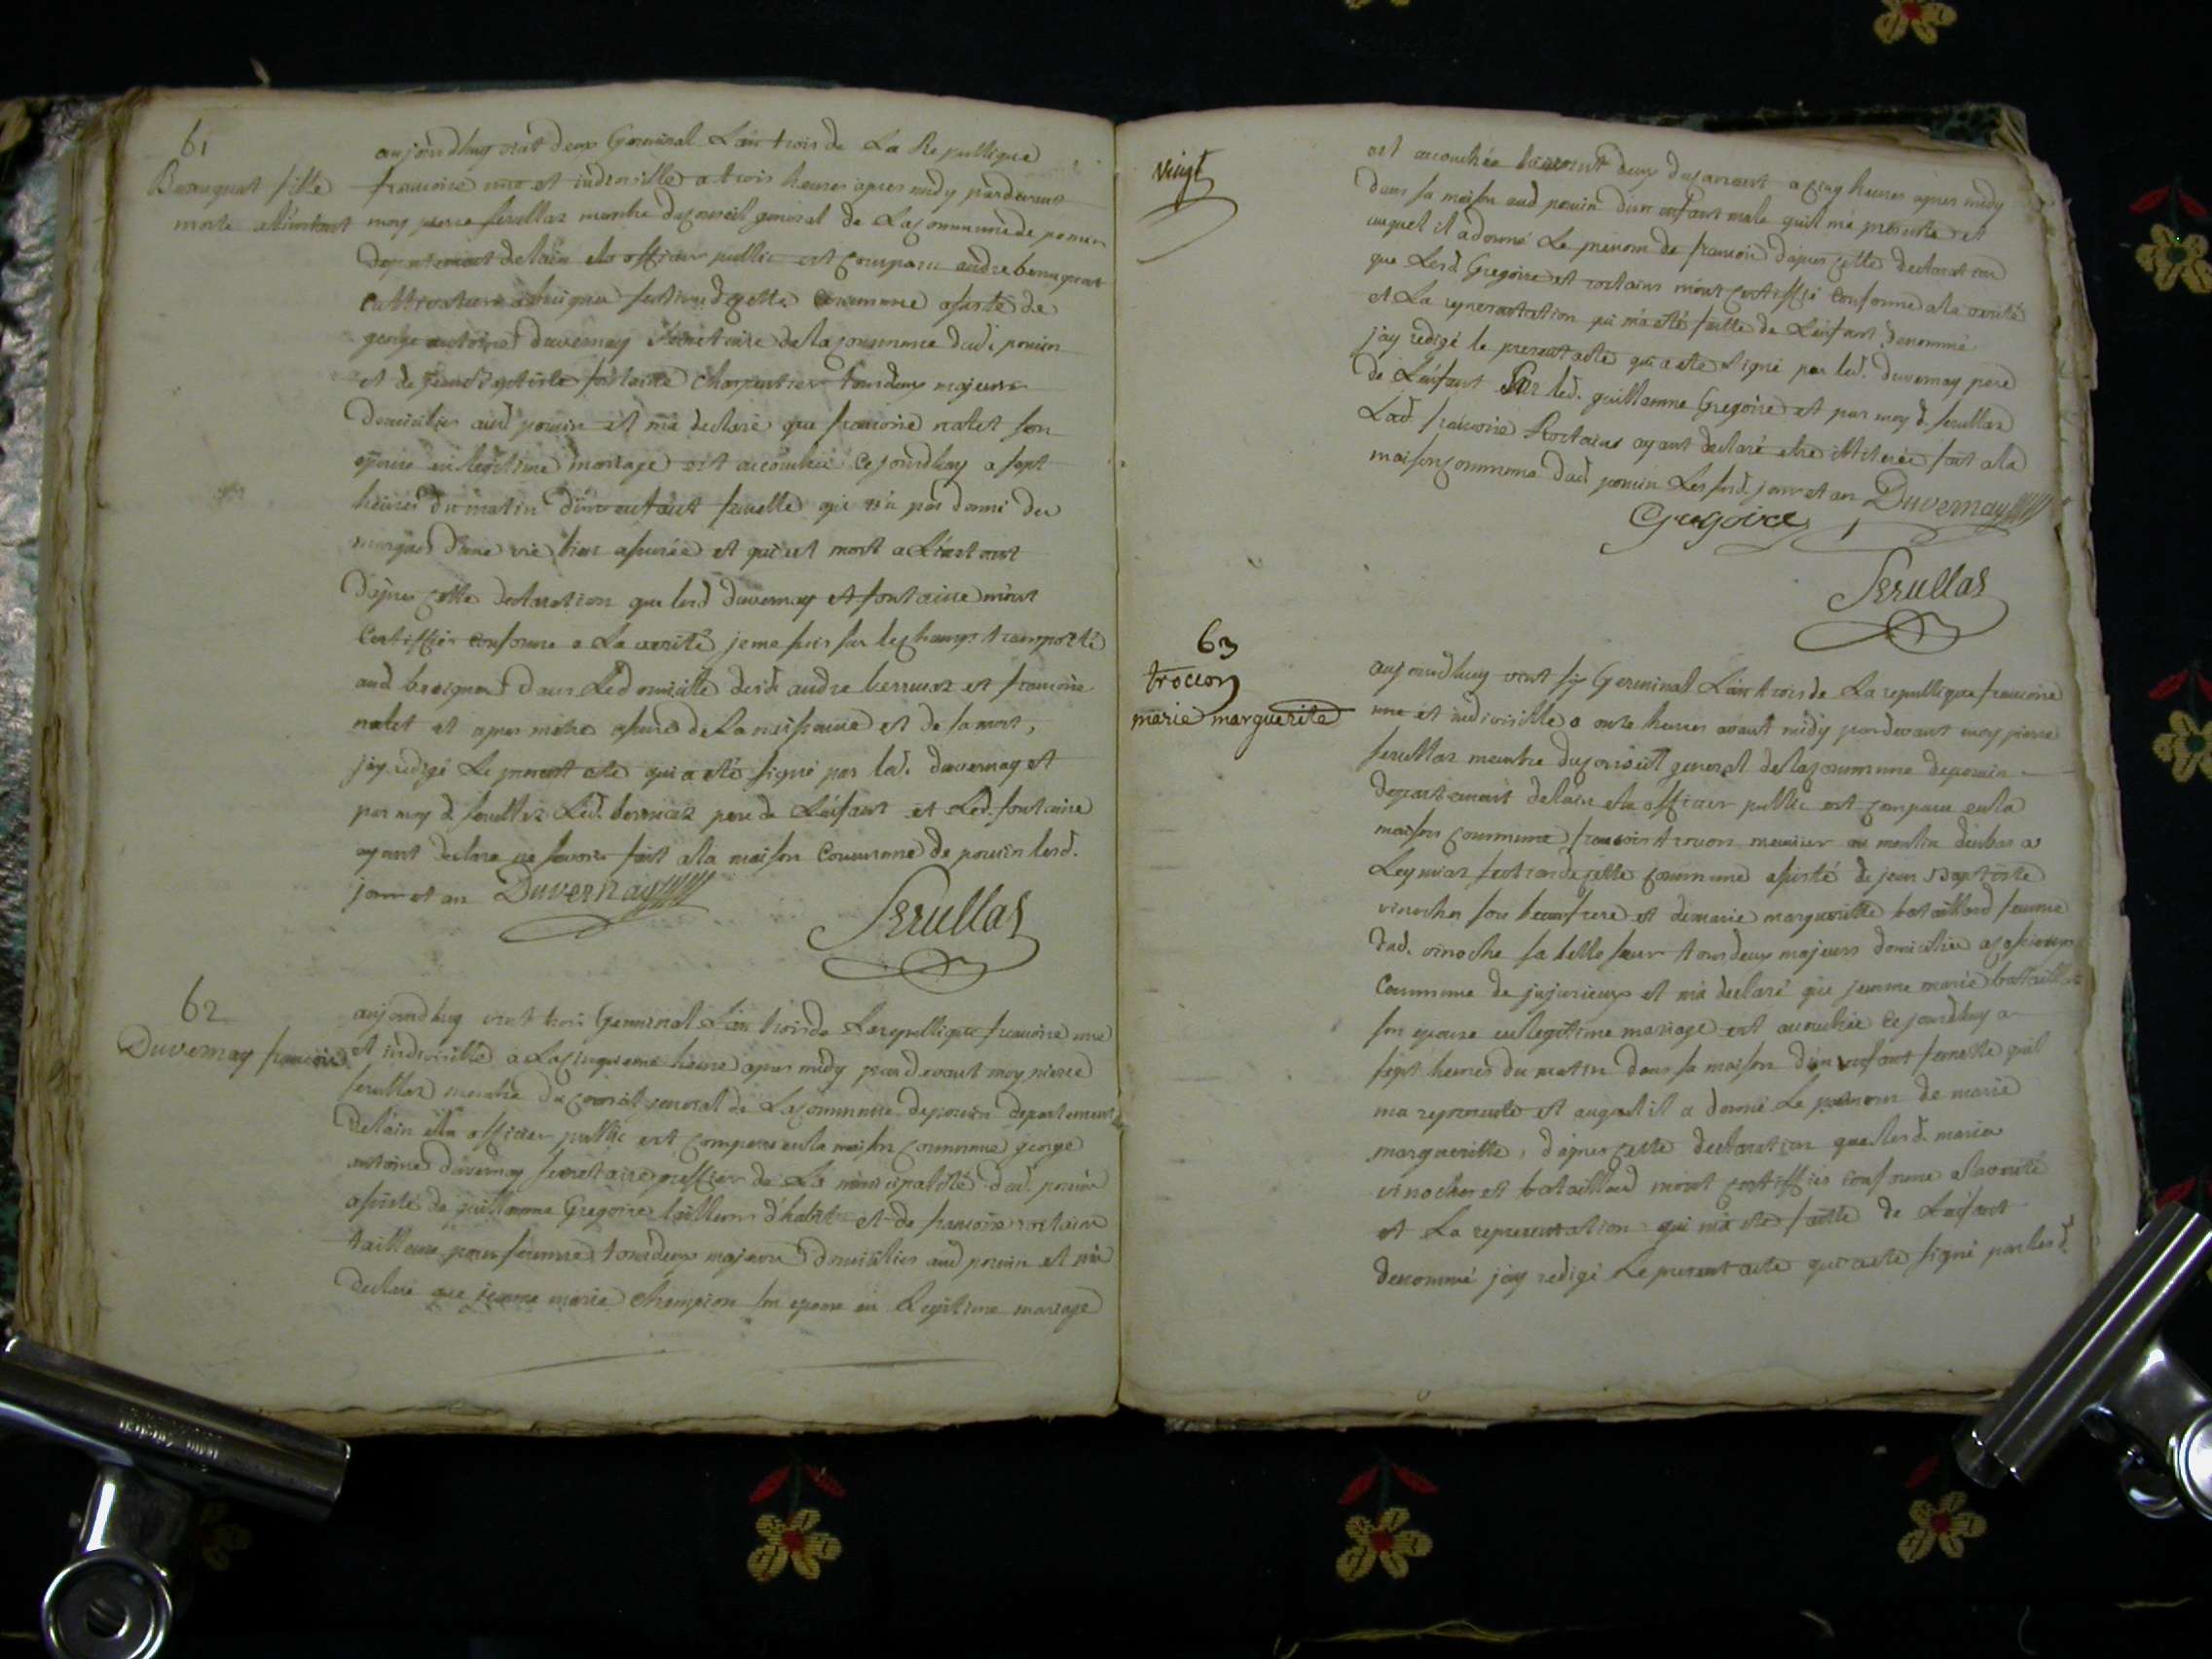 61
fille
morte a l'instant
aujourdhuy vint deux Germinal L'an trois de La Republique
francoise une et indivisille a trois heures apres midy pardevant
moy pierre serullaz membre du conseil general de La commune de poncin
departement de lain elu officier public est comparu andre
cultivateur a section de cette commune assisté de
george antoine duvernay secretaire de la commune dud. poncin
et de jean Baptiste fontaine charpentier tous deux majeurs
domiciliés aud poncin et ma declaré que francoise nalet son
epouse en legitime mariage est accouchée ce jourdhuy a sept
heures du matin d'un enfant femelle qui n'a pas donné des
marques d'une vie bien assurée et qui est mort a L'instant
d'apres cette declaration que lesd duvernay et fontaine m'ont
certiffiés conforme a La verité je me suis sur le champ transporté
aud dans Le domicile desd. andre et francoise
nalet et apres m'etre assuré de La naissance et de sa mort,
j'ay redigé Le present acte qui a eté signé par led. duvernay et
par moy d. serullaz Led. pere de L'enfant et Led. fontaine
ayant declare ne savoir fait a la maison commune de poncin lesd.
jour et an Duvernay
Serullaz
62
Duvernay francois
aujourdhuy vint trois Germinal L'an trois de La republique francoise une
et indivisille a La cinquieme heure apres midy pardevant moy pierre
serullaz membre du conseil general de La commune de poncin departement
de lain elu officier public est comparu en la maison commune george
antoine duvernay secretaire greffier de La municipalité dud. poncin
assisté de guillaume Gregoire tailleur d'habit et de francoise rortaine
tailleuse pour femme tous deux majeurs domiciliés aud poncin et m'a
declaré que jeanne marie champion son epouse en Legitime mariage
vingt
est accouchée le vint deux du courant a cinq heures apres midy
dans sa maison aud poncin d'un enfant male quil m'a presenté et
auquel il a donné Le prenom de francois d'apres cette declaration
que Lesd Gregoire et rortains m'ont certiffié conforme a la verité
et La representation qui m'a eté faitte de L'enfant denommé
j'ay redigé le present acte qui a eté signé par led. duvernay pere
de L'enfant par led. guillaume Gregoire et par moy d. serullaz
Lad. francoise Rortains ayant declaré etre illiterée fait a la
maison commune dud poncin Les susd. jour et an Duvernay
Gregoire
Serullaz
63
trocon
marie marguerite
aujourdhuy vint six Germinal L'an trois de La republique francoise
une et indivisille a onze heures avant midy pardevant moy pierre
serullaz membre du conseil general de la commune de poncin
departement de lain elu officier public est comparu en la
maison commune francois trocon meunier au moulin d'enbas a
Leymiaz section de cette commune assisté de jean Baptiste
vinocher son beau frere et de marie marguerite bataillard femme
dud. vinoche sa belle soeur tous deux majeurs domiciliés a
commune de jujurieux et m'a declaré que jeanne marie bataillard
son epouse en legitime mariage est accouchée ce jourdhuy a
sept heures du matin dans sa maison d'un enfant femelle quil
ma representé et auquel il a donné Le prenom de marie
marguerite, d'apres cette declaration que lesd. mariés
vinocher et bataillard m'ont certiffiés conforme a la verité
et La representation qui m'a eté faitte de L'enfant
denommé j'ay redigé Le present acte qui a eté signé par lesd.